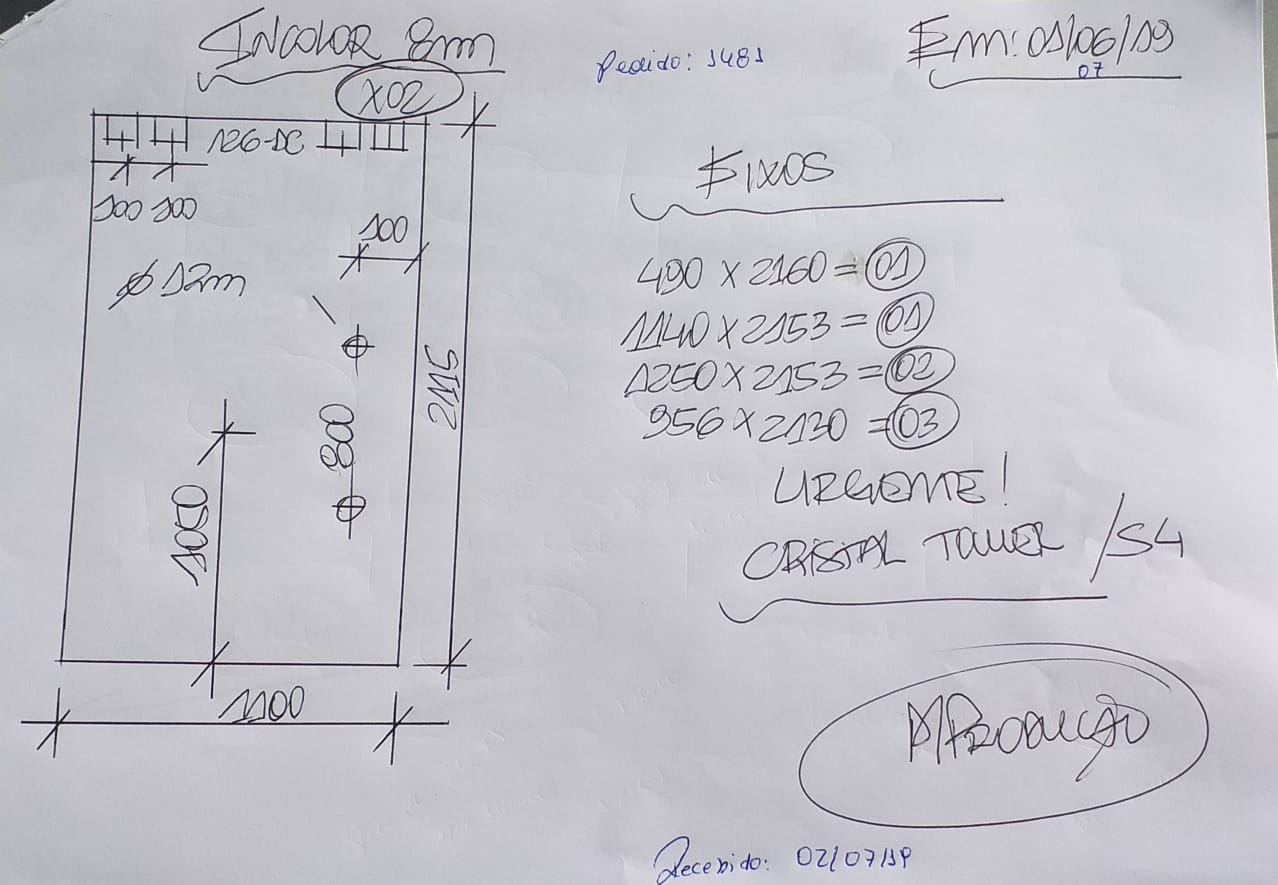 INCOLOR 8m
X02
Pedido: 1481
Em: 01/06/19
07
126-1C
100 100
100
Ø 12m
2115
800
1050
1100
FIXOS
490 X 2160 = 01
1140 X 2153 = 01
1250 X 2153 = 02
956 X 2130 = 03
URGENTE!
CRISTAL TOWER /S4
P/PRODUÇÃO
Recebido: 02/07/19